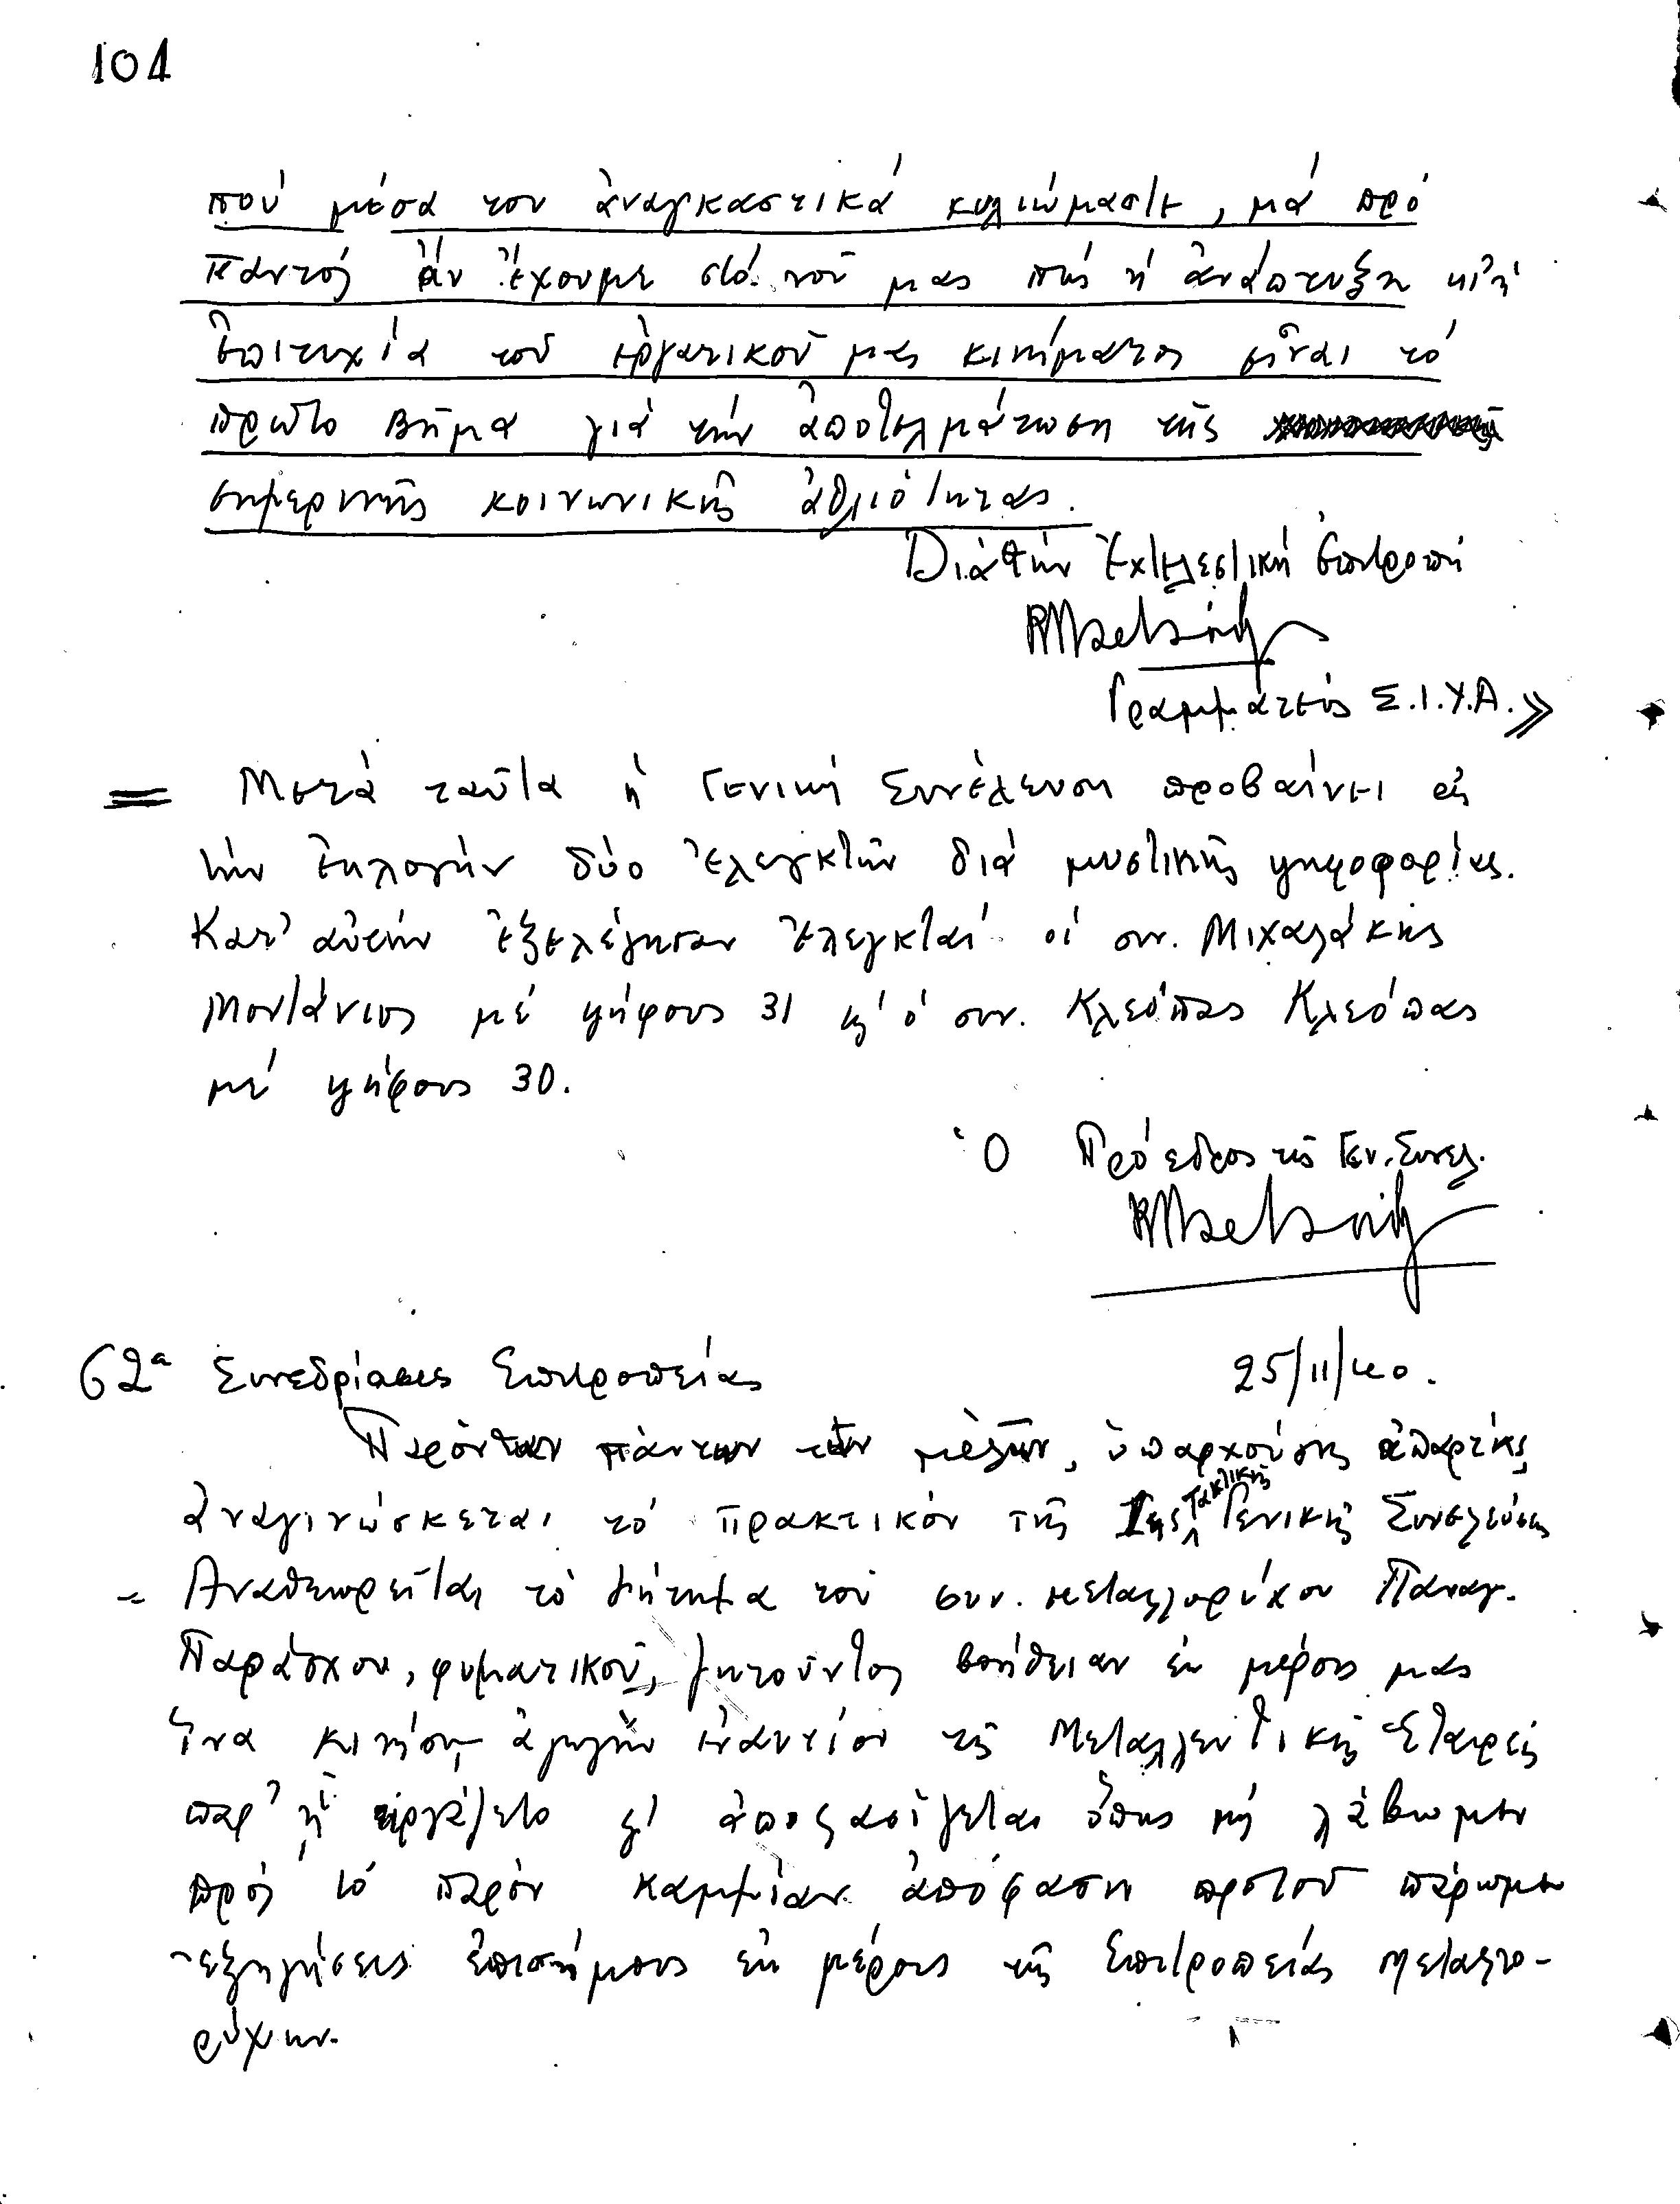 101
πού μέσα του ἀναγκαστικά κυλιώμαστε, μά πρό
παντός ἄν ἔχουμε στό νοῦ μας πώς ἡ ἀνάπτυξη κι' ἡ
ἐπιτυχία τοῦ ἐργατικοῦ μας κινήματος εἶναι τό
πρῶτο βῆμα γιά τήν ἀποτελμάτωση τῆς
σημερινῆς κοινωνικῆς ἀθλιότητας.
Διά τήν Ἐκτελεστική Ἐπιτροπή
Γραμματεύς Σ.Ι.Υ.Α.»
= Μετά ταῦτα ἡ Γενική Συνέλευση προβαίνει εἰς
τήν ἐκλογήν δύο ἐλεγκτῶν διά μυστικῆς ψηφοφορίας.
Κατ' αὐτήν ἐξελέγησαν ἐλεγκταί οἱ συν. Μιχαλάκης
Μοντάνιος μέ ψήφους 31 κ' ὁ συν. Κλεόπας Κλεόπας
μέ ψήφους 30.
Ὁ Πρόεδρος τῆς Γεν. Συνελ.
62α Συνεδρίασις Ἐπιτροπείας 25/11/40.
Παρόντων πάντων τῶν μελῶν, ὑπαρχούσης ἀπαρτίας,
ἀναγινώσκεται τό πρακτικόν τῆς Τακτικῆς Γενικῆς Συνελεύσεως
- Ἀναθεωρεῖται τό ζήτημα τοῦ συν. μεταλλορύχου Παναγ.
Παράσχου, φυματικοῦ, ζητοῦντος βοήθειαν ἐκ μέρους μας
ἵνα κινήσῃ ἀγωγήν ἐναντίον τῆς Μεταλλευτικῆς Ἑταιρείας
παρ' ᾗ εἰργάζετο κ' ἀποφασίζεται ὅπως μή λάβωμεν
πρός τό παρόν καμμίαν ἀπόφασιν προτοῦ πάρωμεν
ἐξηγήσεις ἐπισήμους ἐκ μέρους τῆς Ἐπιτροπείας Μεταλλο-
ρύχων.